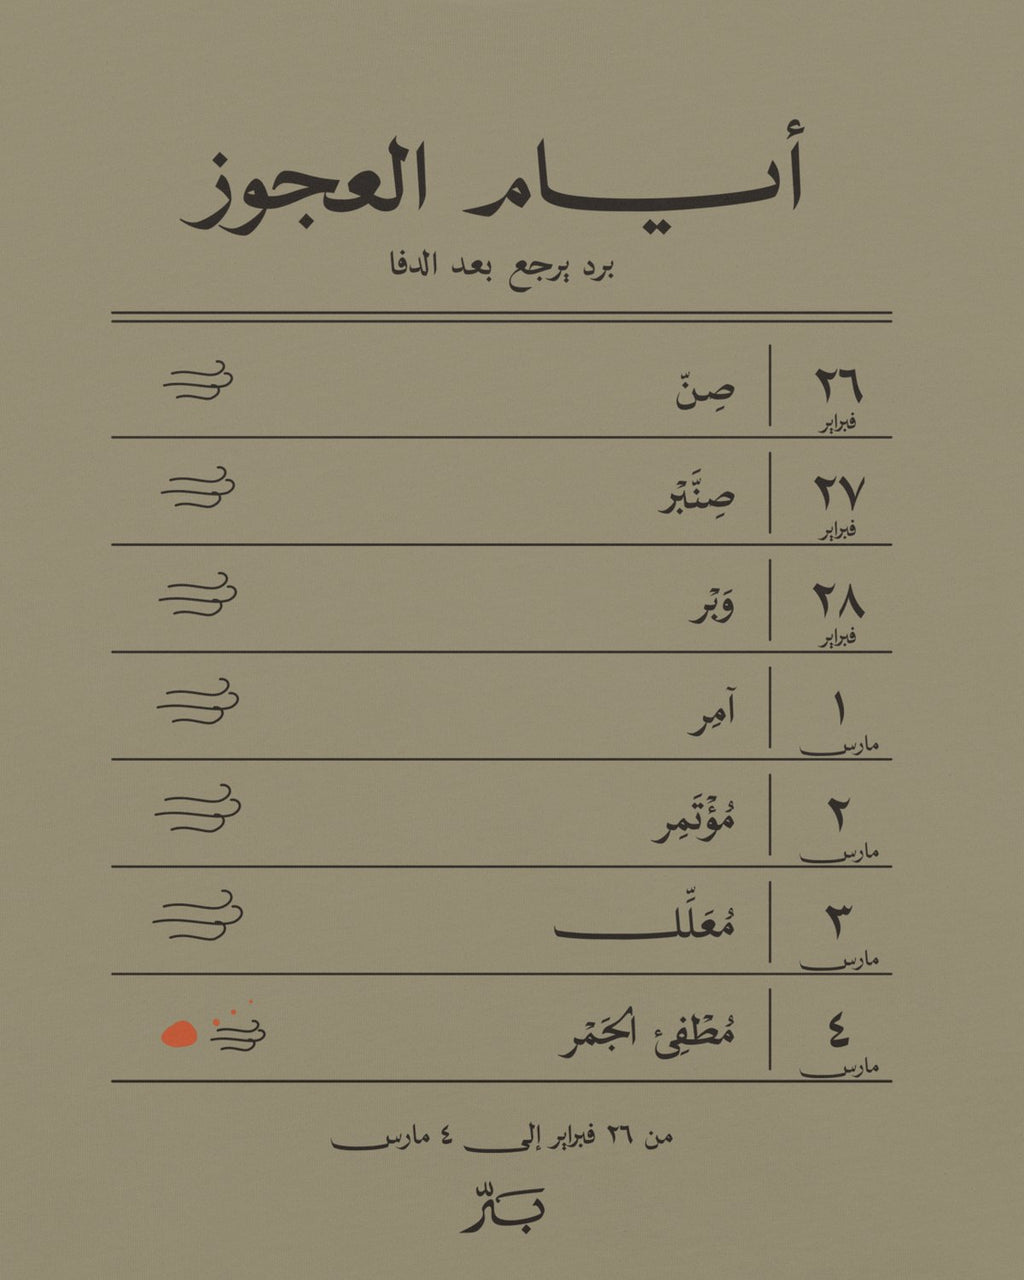 أيـــام العجوز
برد يرجع بعد الدفا
٢٦ فبراير
صِنّ
٢٧ فبراير
صِنَّبْر
٢٨ فبراير
وَبْر
١ مارس
آمِر
٢ مارس
مُؤْتَمِر
٣ مارس
مُعَلِّل
٤ مارس
مُطْفِئ الجَمْر
من ٢٦ فبراير إلى ٤ مارس